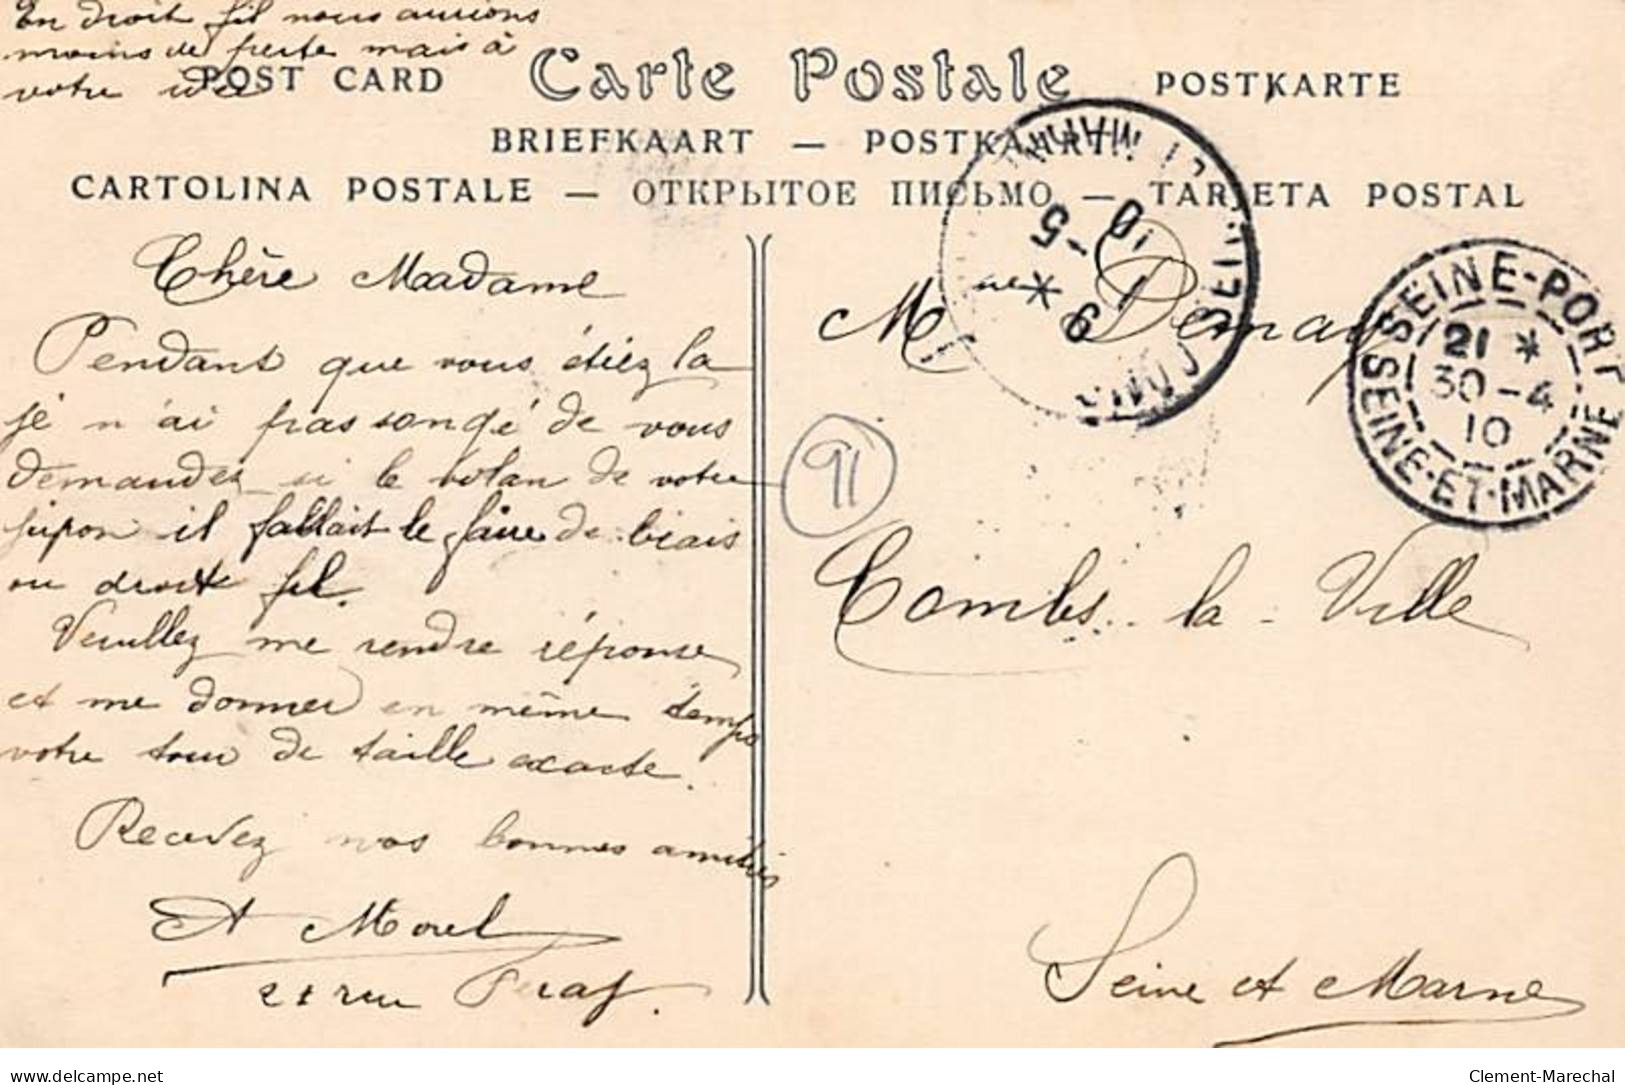 En droit fil nous aurions
moins de perte mais à
votre idée
POST CARD Carte Postale POSTKARTE
BRIEFKAART — POSTKAART
CARTOLINA POSTALE — ОТКРЫТОЕ ПИСЬМО — TARJETA POSTAL
Chère Madame
Pendant que vous étiez la
je n'ai pas songé de vous
demander si le volan de votre
jupon il fallait le faire de biais
ou droit fil.
Veuillez me rendre réponse
et me donner en même temps
votre tour de taille exacte.
Recevez nos bonnes amitiés
A Morel
21 rue
Mme Demay
91
Combs-la-Ville
Seine et Marne
SEINE-PORT
21 *
30-4
10
SEINE-ET-MARNE
9 *
1 -5
10
delcampe.net
Clement-Marechal